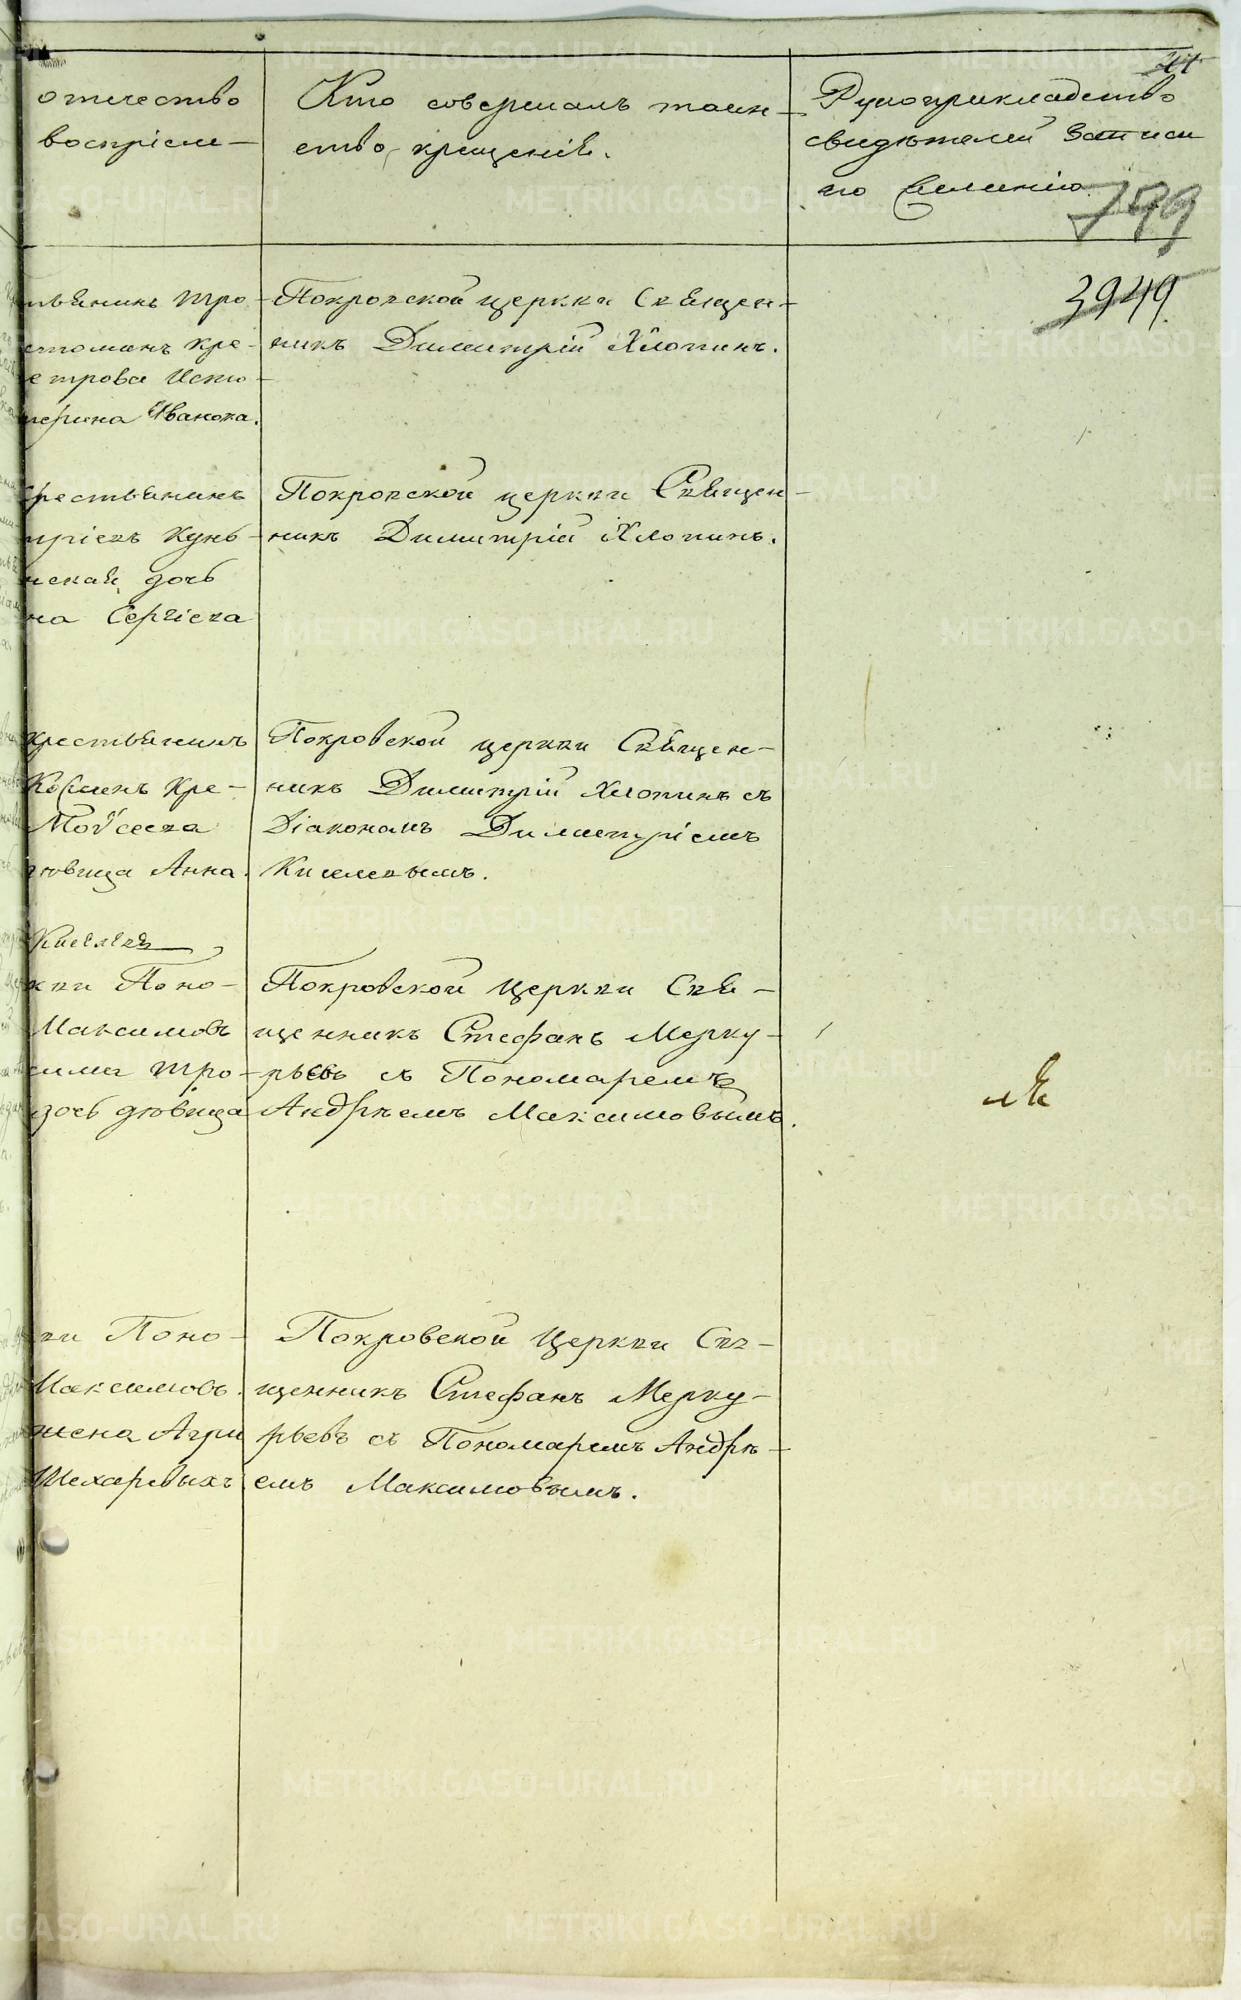 отечество
воспріем-
Кто совершалъ таин-
ство крещенія.
Рукоприкладство
свидѣтелей записи
по желанію
799
3949
тьянинъ Тро-
кре-
трова Исто-
терина Иванова.
Покровской церкви Священ-
никъ Димитрій Хлопинъ.
Крестьянинъ
Кунь-
дочь
на Сергіева
Покровской церкви Священ-
никъ Димитрій Хлопинъ.
Крестьянинъ
Кре-
Моѵсеева
дѣвица Анна.
Покровской церкви Священ-
никъ Димитрій Хлопинъ съ
Діакономъ Димитріемъ
Киселевымъ.
Киселевъ
кви Поно-
Максимовъ
сима Тро-
дочь дѣвица
Покровской Церкви Свя-
щенникъ Стефанъ Мерку-
рьевъ съ Пономаремъ
Андрѣемъ Максимовымъ.
ви Поно-
Максимовъ.
жена Агри
Шехаревыхъ
Покровской Церкви Свя-
щенникъ Стефанъ Мерку-
рьевъ съ Пономаремъ Андрѣ-
емъ Максимовымъ.
METRIKI.GASO-URAL.RU